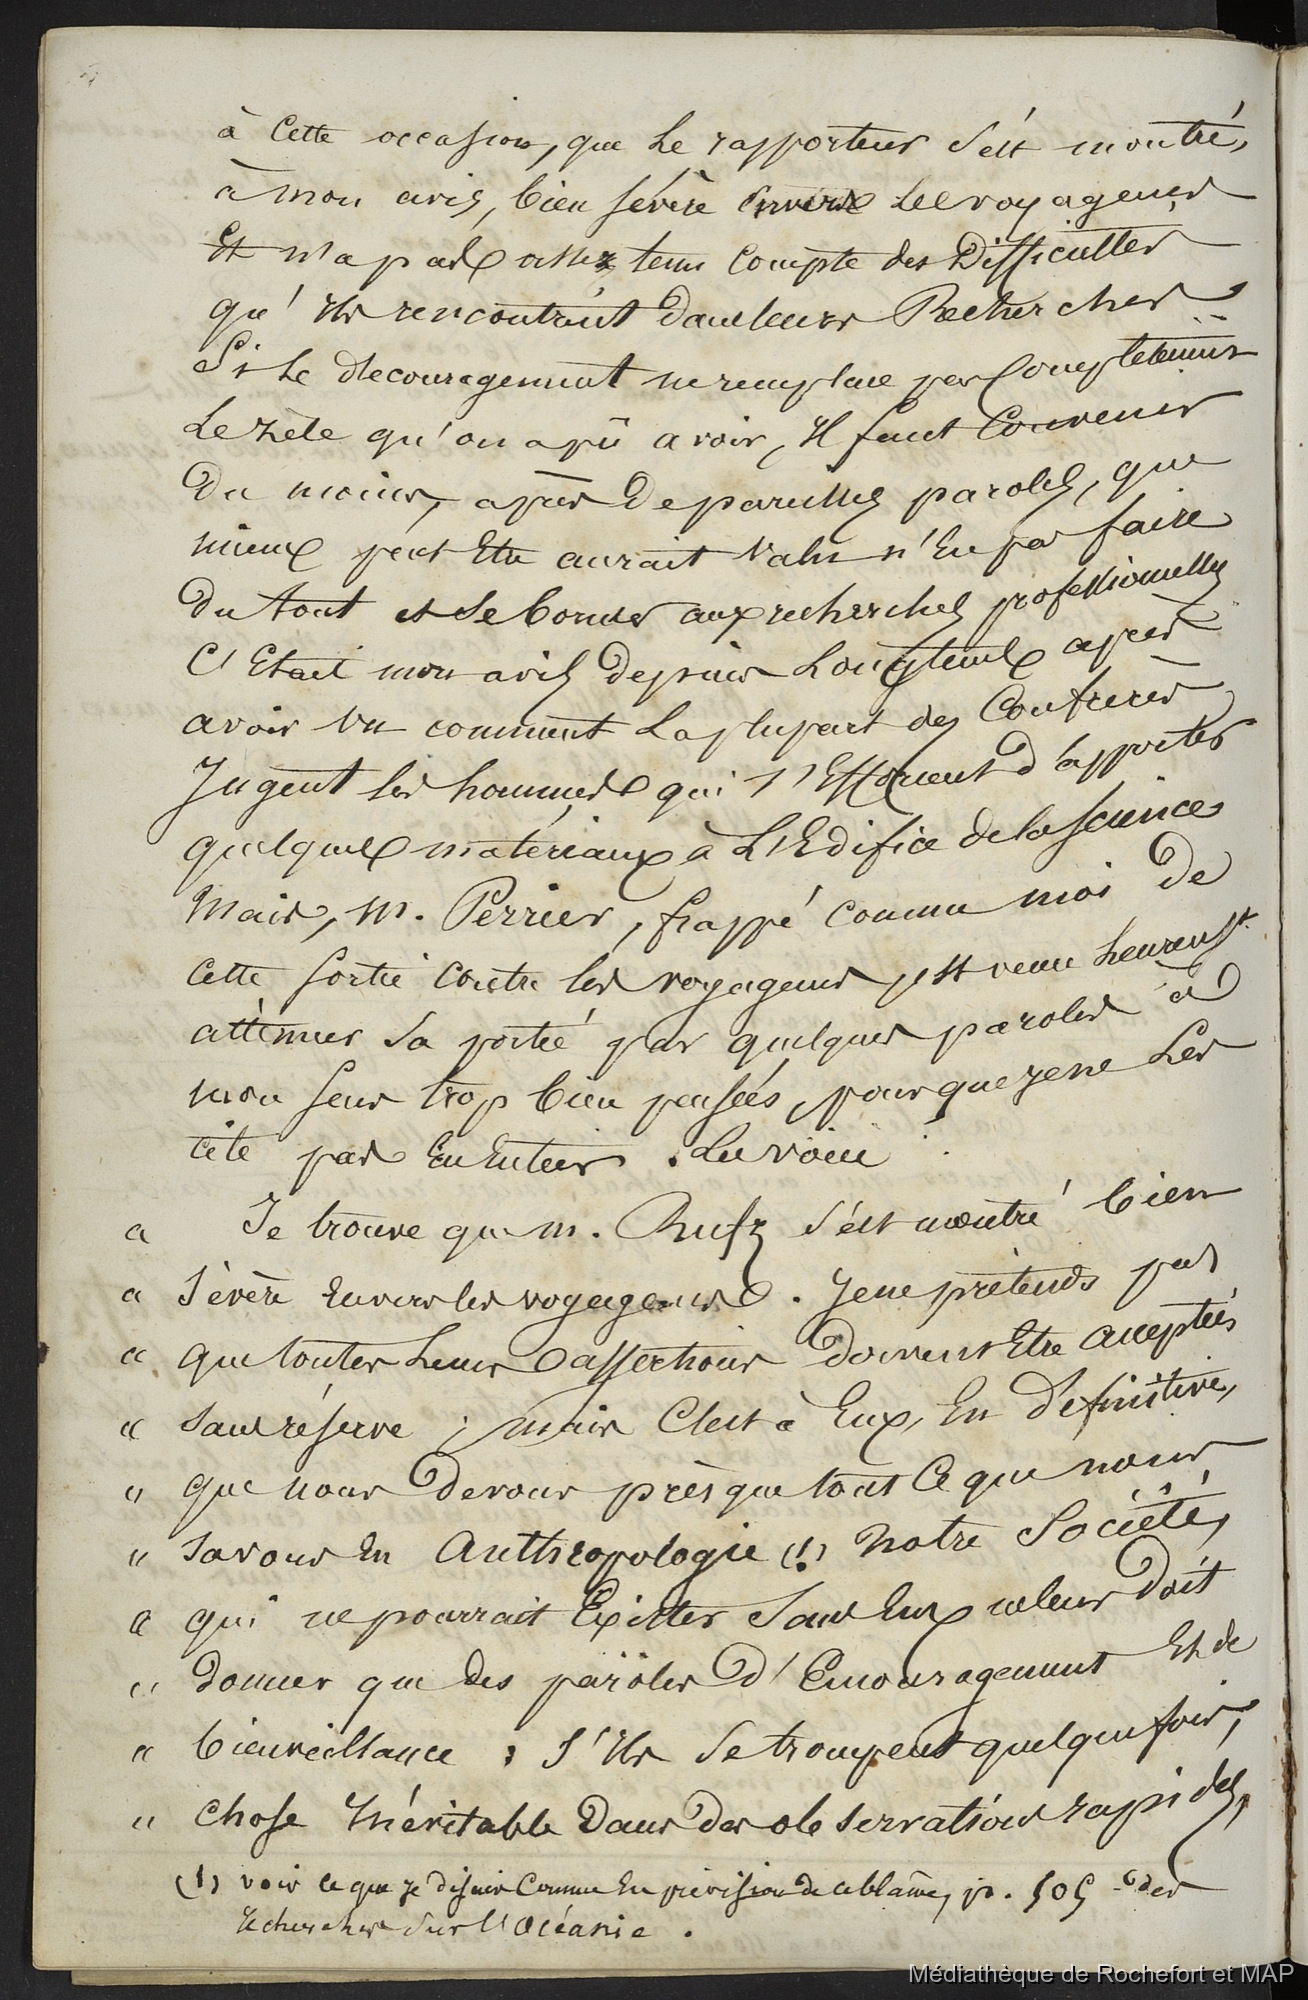 à Cette occasion, que Le rapporteur s'ést montré,
à mon avis, bien sévère envers Les voyageurs
Et n'a pas assez tenu Compte des Difficultés
qu'ils rencontrent dans leurs Recherches
Si Le découragement ne remplace pas Complètement
Le zèle qu'on a pû avoir, Il faut Convenir
Du moins, après De pareilles paroles, que
mieux peut Etre aurait valu n'En pas faire
Du tout et se borner aux recherches professionnelles
C'Etait mon avis Depuis Longtems après
avoir vu comment La plupart des Confrères
Jugent les hommes qui s'Efforcent d'apporter
quelques matériaux à L'Edifice de la Science
Mais, M. Perrier, frappé comme moi De
cette sortie contre les voyageurs, est venu heureusst.
attènuer sa portée par quelques paroles à
mon sens trop bien pensées, pour que je ne Les
cite pas En Entier. Les voici
« Je trouve que M. Rufz s'ést montré bien
« sévère Envers les voyageurs. Je ne prétends pas
« que toutes Leurs assertions doivent Etre acceptées
« sans réserve ; mais C'est à Eux, En Définitive,
« que nous Devons prèsque tout Ce que nous
« savons En Anthropologie (1) Notre Société,
« qui ne pourrait Exister Sans Eux ne leur Doit
« Donner que des paroles D'Encouragement Et de
« bienveillance : s'Ils se trompent quelque fois,
« Chose Inévitable Dans des observations rapides,
(1) voir ce que je disais Comme En prévision de ce blâme, p. 505 des
recherches sur l'Océanie.
Médiathèque de Rochefort et MAP